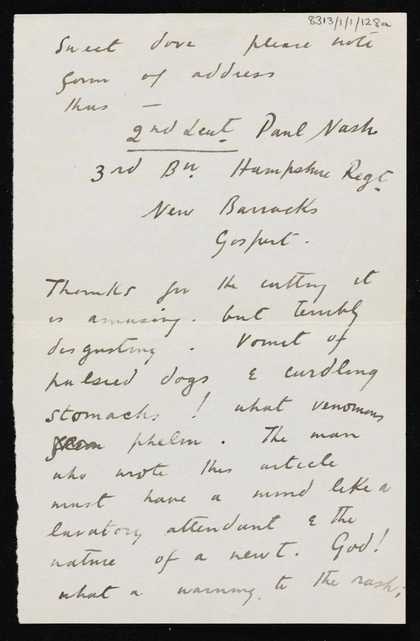 8313/1/1/128a
Sweet dove please note
form of address
thus —
2nd Leut Paul Nash
3rd Bn Hampshire Regt
New Barracks
Gosport.
Thanks for the cutting it
is amusing. but terribly
disgusting. Vomit of
pulsied dogs & curdling
stomachs! what venomous
phelm. The man
who wrote this article
must have a mind like a
lavatory attendant & the
nature of a newt. God!
what a warning to the rash;